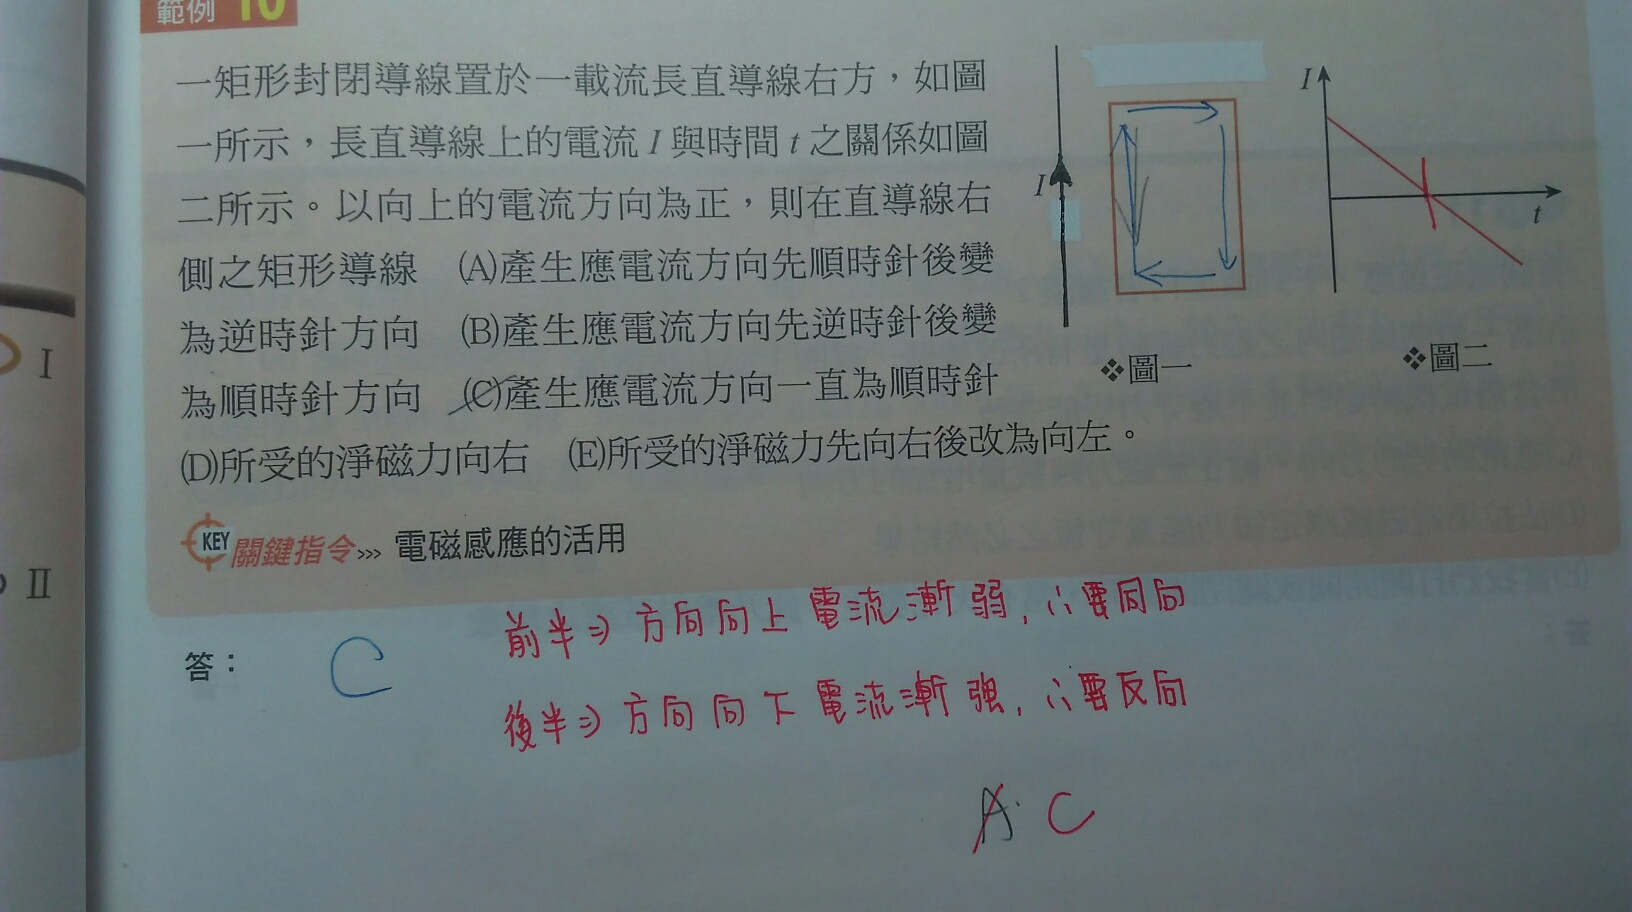 範例 10
一矩形封閉導線置於一載流長直導線右方，如圖
一所示，長直導線上的電流 I 與時間 t 之關係如圖
二所示。以向上的電流方向為正，則在直導線右
側之矩形導線　(A)產生應電流方向先順時針後變
為逆時針方向　(B)產生應電流方向先逆時針後變
為順時針方向　(C)產生應電流方向一直為順時針
(D)所受的淨磁力向右　(E)所受的淨磁力先向右後改為向左。
I
❖圖一
I
t
❖圖二
KEY 關鍵指令>>> 電磁感應的活用
答：
C
前半⇒方向向上電流漸弱，∴要同向
後半⇒方向向下電流漸強，∴要反向
A. C
I
II